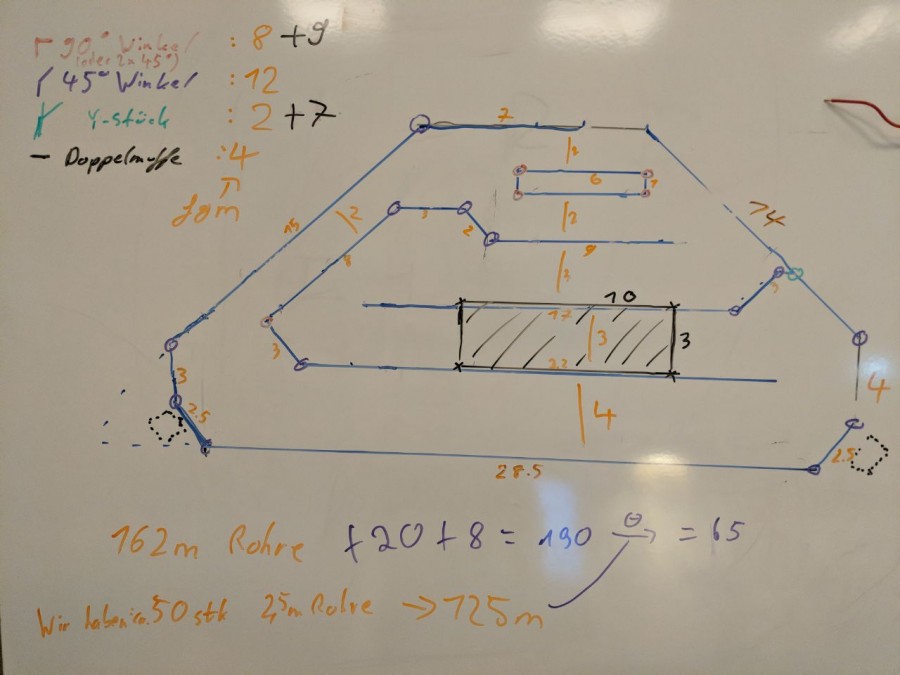 90° Winkel : 8 +9
(oder 2x 45°)
45° Winkel : 12
Y-Stück : 2 +7
— Doppelmuffe : 4
7
2
6
1
15
2
3
2
2
8
9
2
14
3
10
17
3
3
3
22
3
4
4
2.5
2.5
28.5
162m Rohre +20+8 = 190 = 65
Wir haben ca. 50 stk 2,5m Rohre → 125m